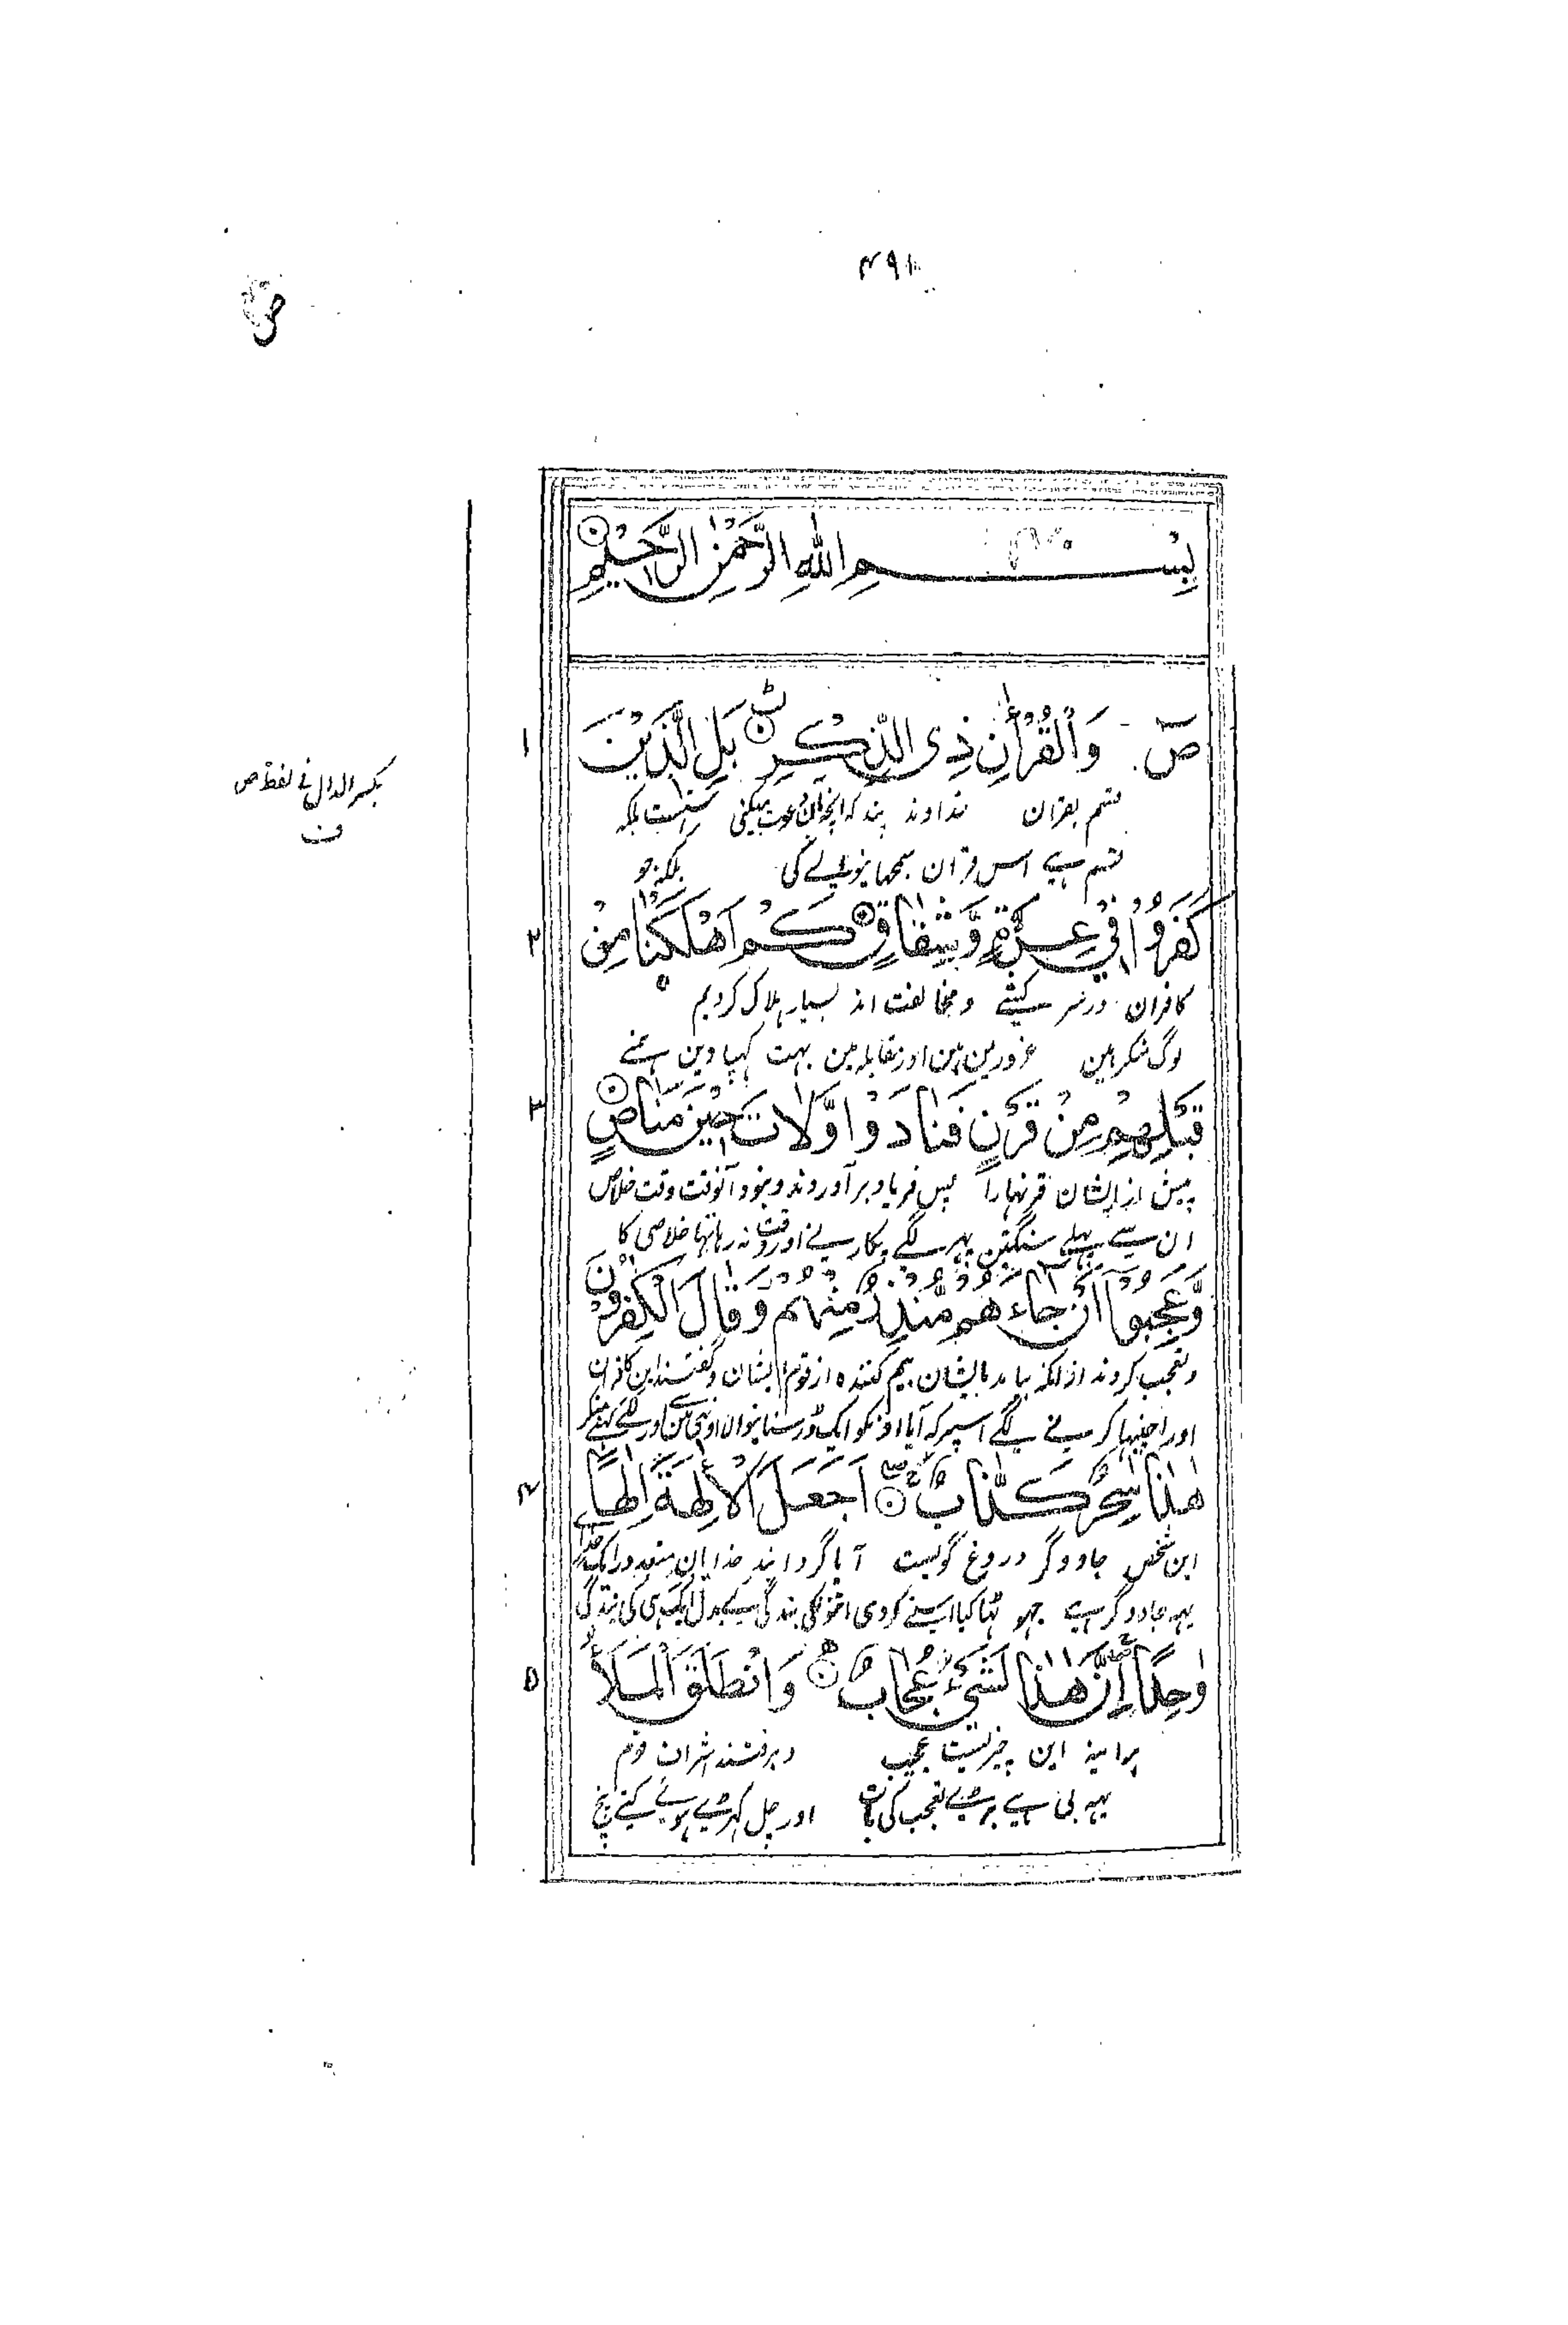 ۴۹۱
ص
بِسْمِ اللّٰهِ الرَّحْمٰنِ الرَّحِيْمِ
صٓ وَالْقُرْاٰنِ ذِى الذِّكْرِ بَلِ الَّذِيْنَ
۱
بکسر الدال فی لفظ ص
قسم بقران خداوند پند که آنچه بآن دعوت میکنی راست است بلکه
قسم ہے اس قران سمجھانیوالے کی بلکہ جو
كَفَرُوْا فِيْ عِزَّةٍ وَّشِقَاقٍ كَمْ اَهْلَكْنَا مِنْ
۲
کافران در سرکشی و مخالفت اند بسیار ہلاک کردیم
لوگ منکر ہین غرور مین ہین اور مقابلہ مین بہت کہپا دین ہمنے
قَبْلِهِمْ مِنْ قَرْنٍ فَنَادَوْا وَّلَاتَ حِيْنَ مَنَاصٍ
۳
پیش از ایشان قرنہارا پس فریاد بر آوردند و نبود آنوقت وقت خلاص
ان سے پہلے سنگتین پہر لگے پکارنے اور وقت نہ رہا تہا خلاصی کا
وَعَجِبُوْٓا اَنْ جَآءَهُمْ مُّنْذِرٌ مِّنْهُمْ وَقَالَ الْكٰفِرُوْنَ
و تعجب کردند از آنکہ بیامد بایشان بیم کننده از قوم ایشان و گفتند این کافران
اور اچنبہا کرنے لگے اسپر کہ آیا اونکو ایک ڈر سنانیوالا اونہی مین سے اور لگے کہنے منکر
هٰذَا سٰحِرٌ كَذَّابٌ اَجَعَلَ الْاٰلِهَةَ اِلٰهًا
۴
این شخص جادوگر دروغ گوست آیا گردانید خدایان متعدد را یک خدا
یہہ جادوگر ہے جہوٹہا کیا اسنے کردی اتنونکی بندگی کے بدل ایک ہی کی بندگی
وَّاحِدًا اِنَّ هٰذَا لَشَيْءٌ عُجَابٌ وَانْطَلَقَ الْمَلَاُ
۵
ہرآئینہ این چیزیست عجیب و برفتند اشراف قوم
یہہ بی ہے بڑے تعجب کی بات اور چل کہڑے ہوئے کتنے پنچ